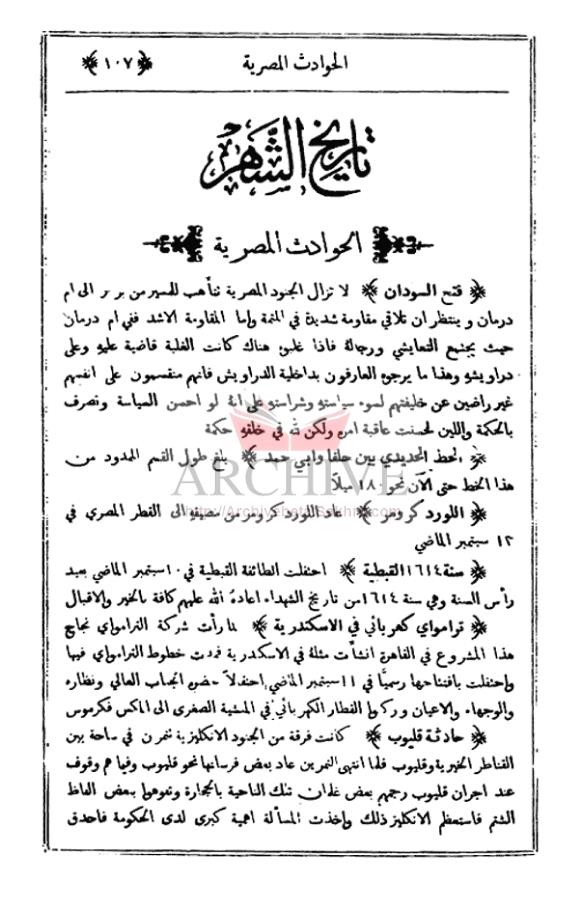 الحوادث المصرية ﴿١٠٧﴾
تاريخ الشهر
الحوادث المصرية
﴿ فتح السودان ﴾ لا تزال الجنود المصرية تتأهب للمسير من بربر الى ام
درمان وينتظر ان تلاقي مقاومة شديدة في المتمة واما المقاومة الاشد ففي ام درمان
حيث يجتمع التعايشي ورجالهُ فاذا غلبوهُ هناك كانت الغلبة قاضية عليهِ وعلى
دراويشهِ وهذا ما يرجوهُ العارفون بداخلية الدراويش فانهم منقسمون على انفسهم
غير راضين عن خليفتهم لسوء سياستهِ وشراستهِ على انهُ لو احسن السياسة وتصرف
بالحكمة واللين لحسنت عاقبة امره ولكن لله في خلقهِ حكمة
﴿ الخط الحديدي بين حلفا وابي حمد ﴾ بلغ طول القسم الممدود من
هذا الخط حتى الآن نحو ١٨٠ ميلاً
ARCHIVE
http://Archivebeta.Sakhrit.com
﴿ اللورد كرومر ﴾ عاد اللورد كرومر من مصيفهِ الى القطر المصري في
١٢ سبتمبر الماضي
﴿ سنة ١٦١٤ القبطية ﴾ احتفلت الطائفة القبطية في ١٠ سبتمبر الماضي بعيد
رأس السنة وهي سنة ١٦١٤ من تاريخ الشهداء اعادهُ الله عليهم كافة بالخير والاقبال
﴿ ترامواي كهربائي في الاسكندرية ﴾ لما رأت شركة الترامواي نجاح
هذا المشروع في القاهرة انشأت مثلهُ في الاسكندرية فمدت خطوط الترامواي فيها
واحتفلت بافتتاحها رسميًّا في ١١ سبتمبر الماضي احتفالاً حضرهُ الجناب العالي ونظاره
والوجهاء والاعيان وركبوا القطار الكهربائي في المنشية الصغرى الى المكس فكرموس
﴿ حادثة قليوب ﴾ كانت فرقة من الجنود الانكليزية تتمرن في ساحة بين
القناطر الخيرية وقليوب فلما انتهى التمرين عاد بعض فرسانها نحو قليوب وفيما هم وقوف
عند اجران قليوب رجمهم بعض غلمان تلك الناحية بالحجارة وتفوهوا ببعض الفاظ
الشتم فاستعظم الانكليز ذلك واخذت المسألة اهمية كبرى لدى الحكومة فاحدق